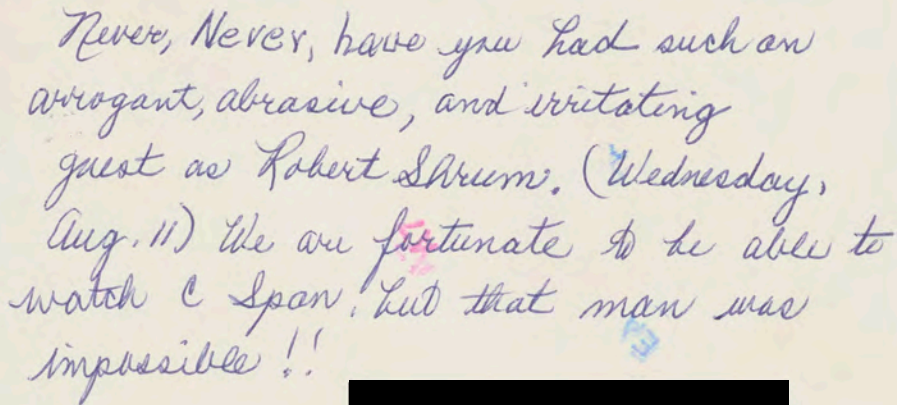 Never, Never, have you had such an
arrogant, abrasive, and irritating
guest as Robert Shrum. (Wednesday,
Aug. 11) We are fortunate to be able to
watch C Span, but that man was
impossible!!